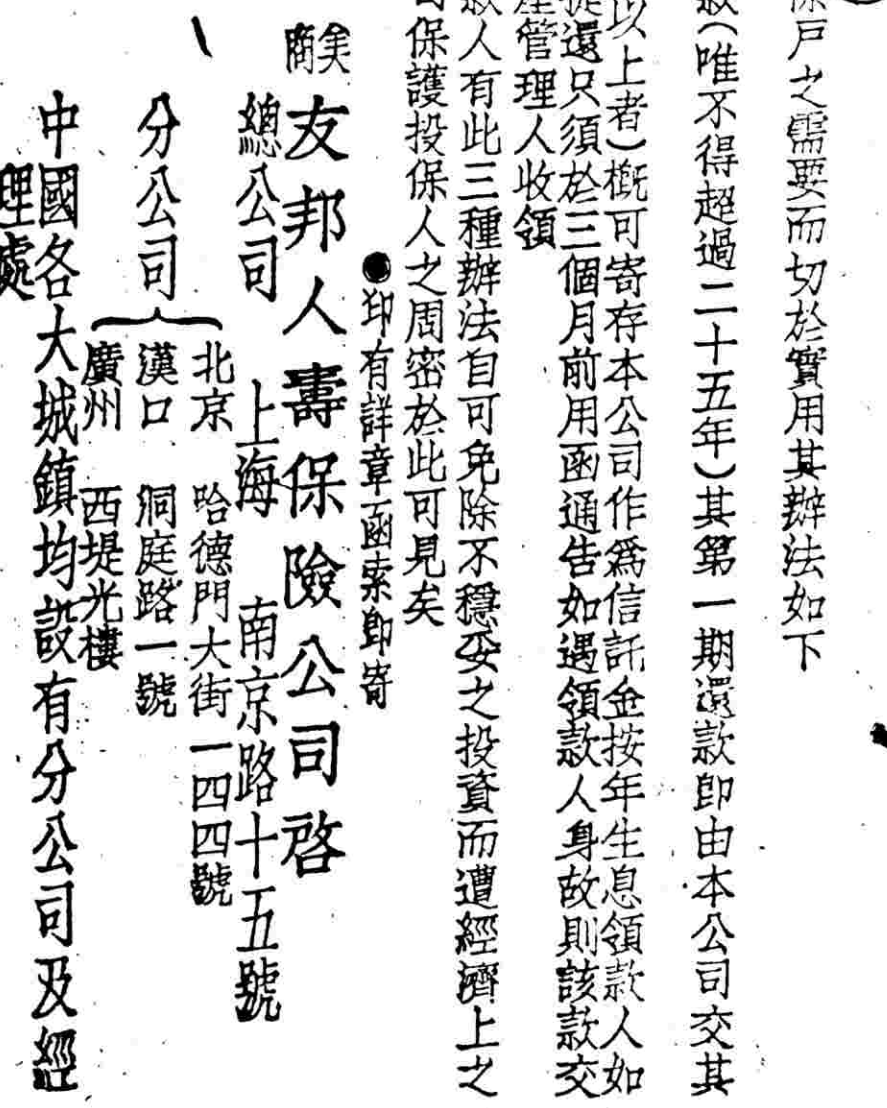 保戶之需要而切於實用其辦法如下
款(唯不得超過二十五年)其第一期還款即由本公司交其
以上者)概可寄存本公司作爲信託金按年生息領款人如
提還只須於三個月前用函通告如遇領款人身故則該款交
產管理人收領
款人有此三種辦法自可免除不穩妥之投資而遭經濟上之
司保護投保人之周密於此可見矣
●印有詳章函索即寄
美商
友邦人壽保險公司啓
總公司 上海 南京路十五號
分公司
北京 哈德門大街一四四號
漢口 洞庭路一號
廣州 西堤光樓
中國各大城鎮均設有分公司及經
理處